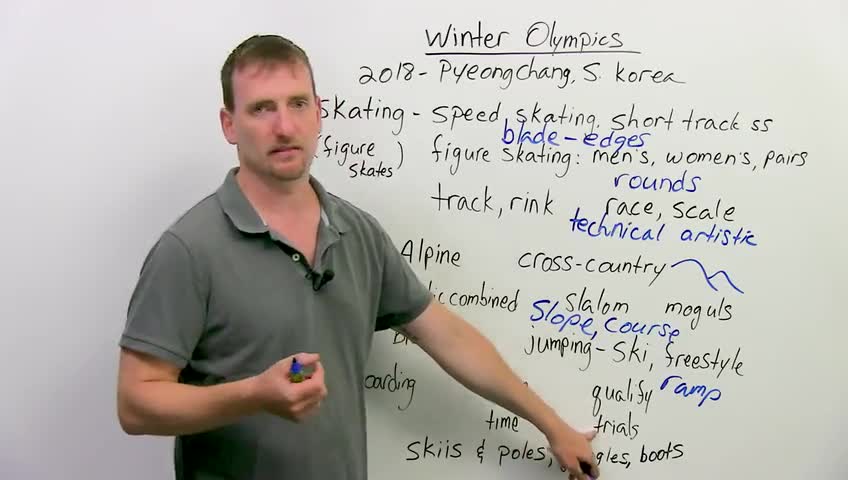 Winter Olympics
2018 - Pyeongchang, S. Korea
Skating - speed skating, short track ss
blade-edges
(figure skates) figure skating: men's, women's, pairs
rounds
track, rink race, scale
technical artistic
Alpine cross-country
combined slalom moguls
Slope, course
jumping - ski, freestyle
oarding qualify ramp
time trials
skiis & poles, gles, boots